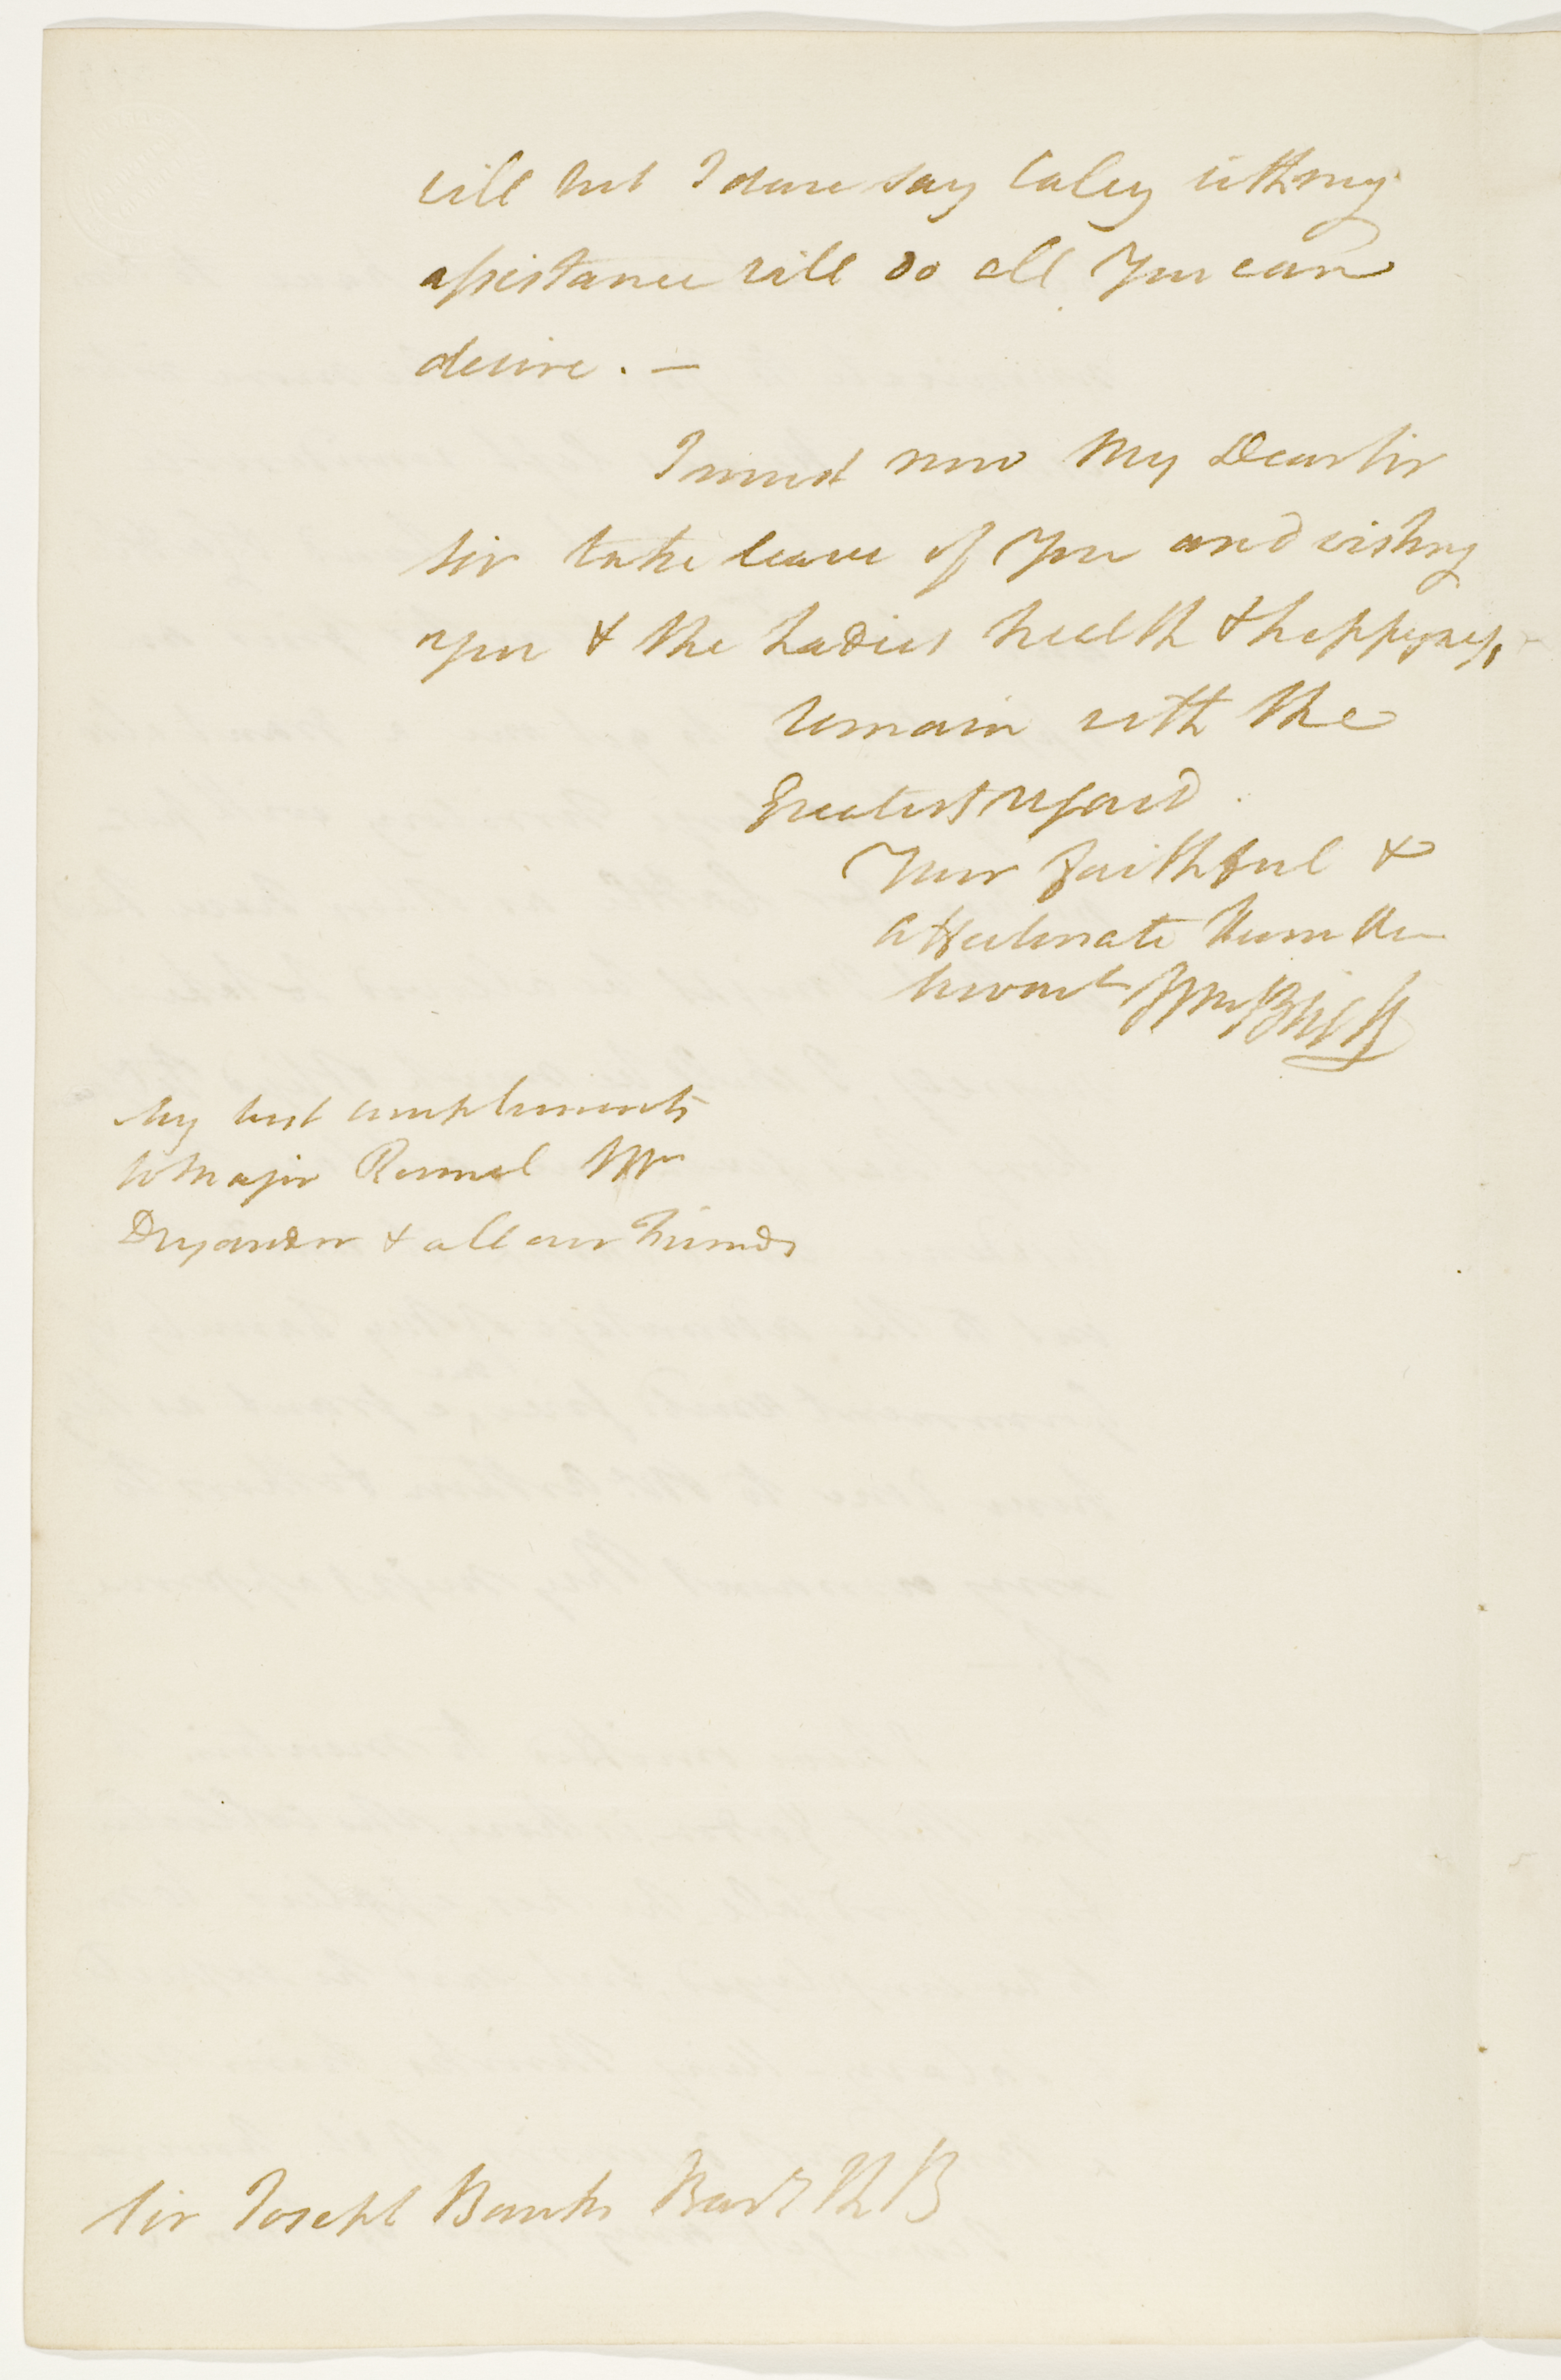 will but I dare say Caley with my
assistance will do all you can
desire. —
I must now My Dear Sir
Sir take leave of You and wishing
you & the Ladies health & happyness,
remain with the
Greatest regard.
Your faithful &
affectionate Humble
Servant Wm Bligh
My best compliments
to Major Rennel Mr
Dryander & all our Friends
Sir Joseph Banks Bart K B